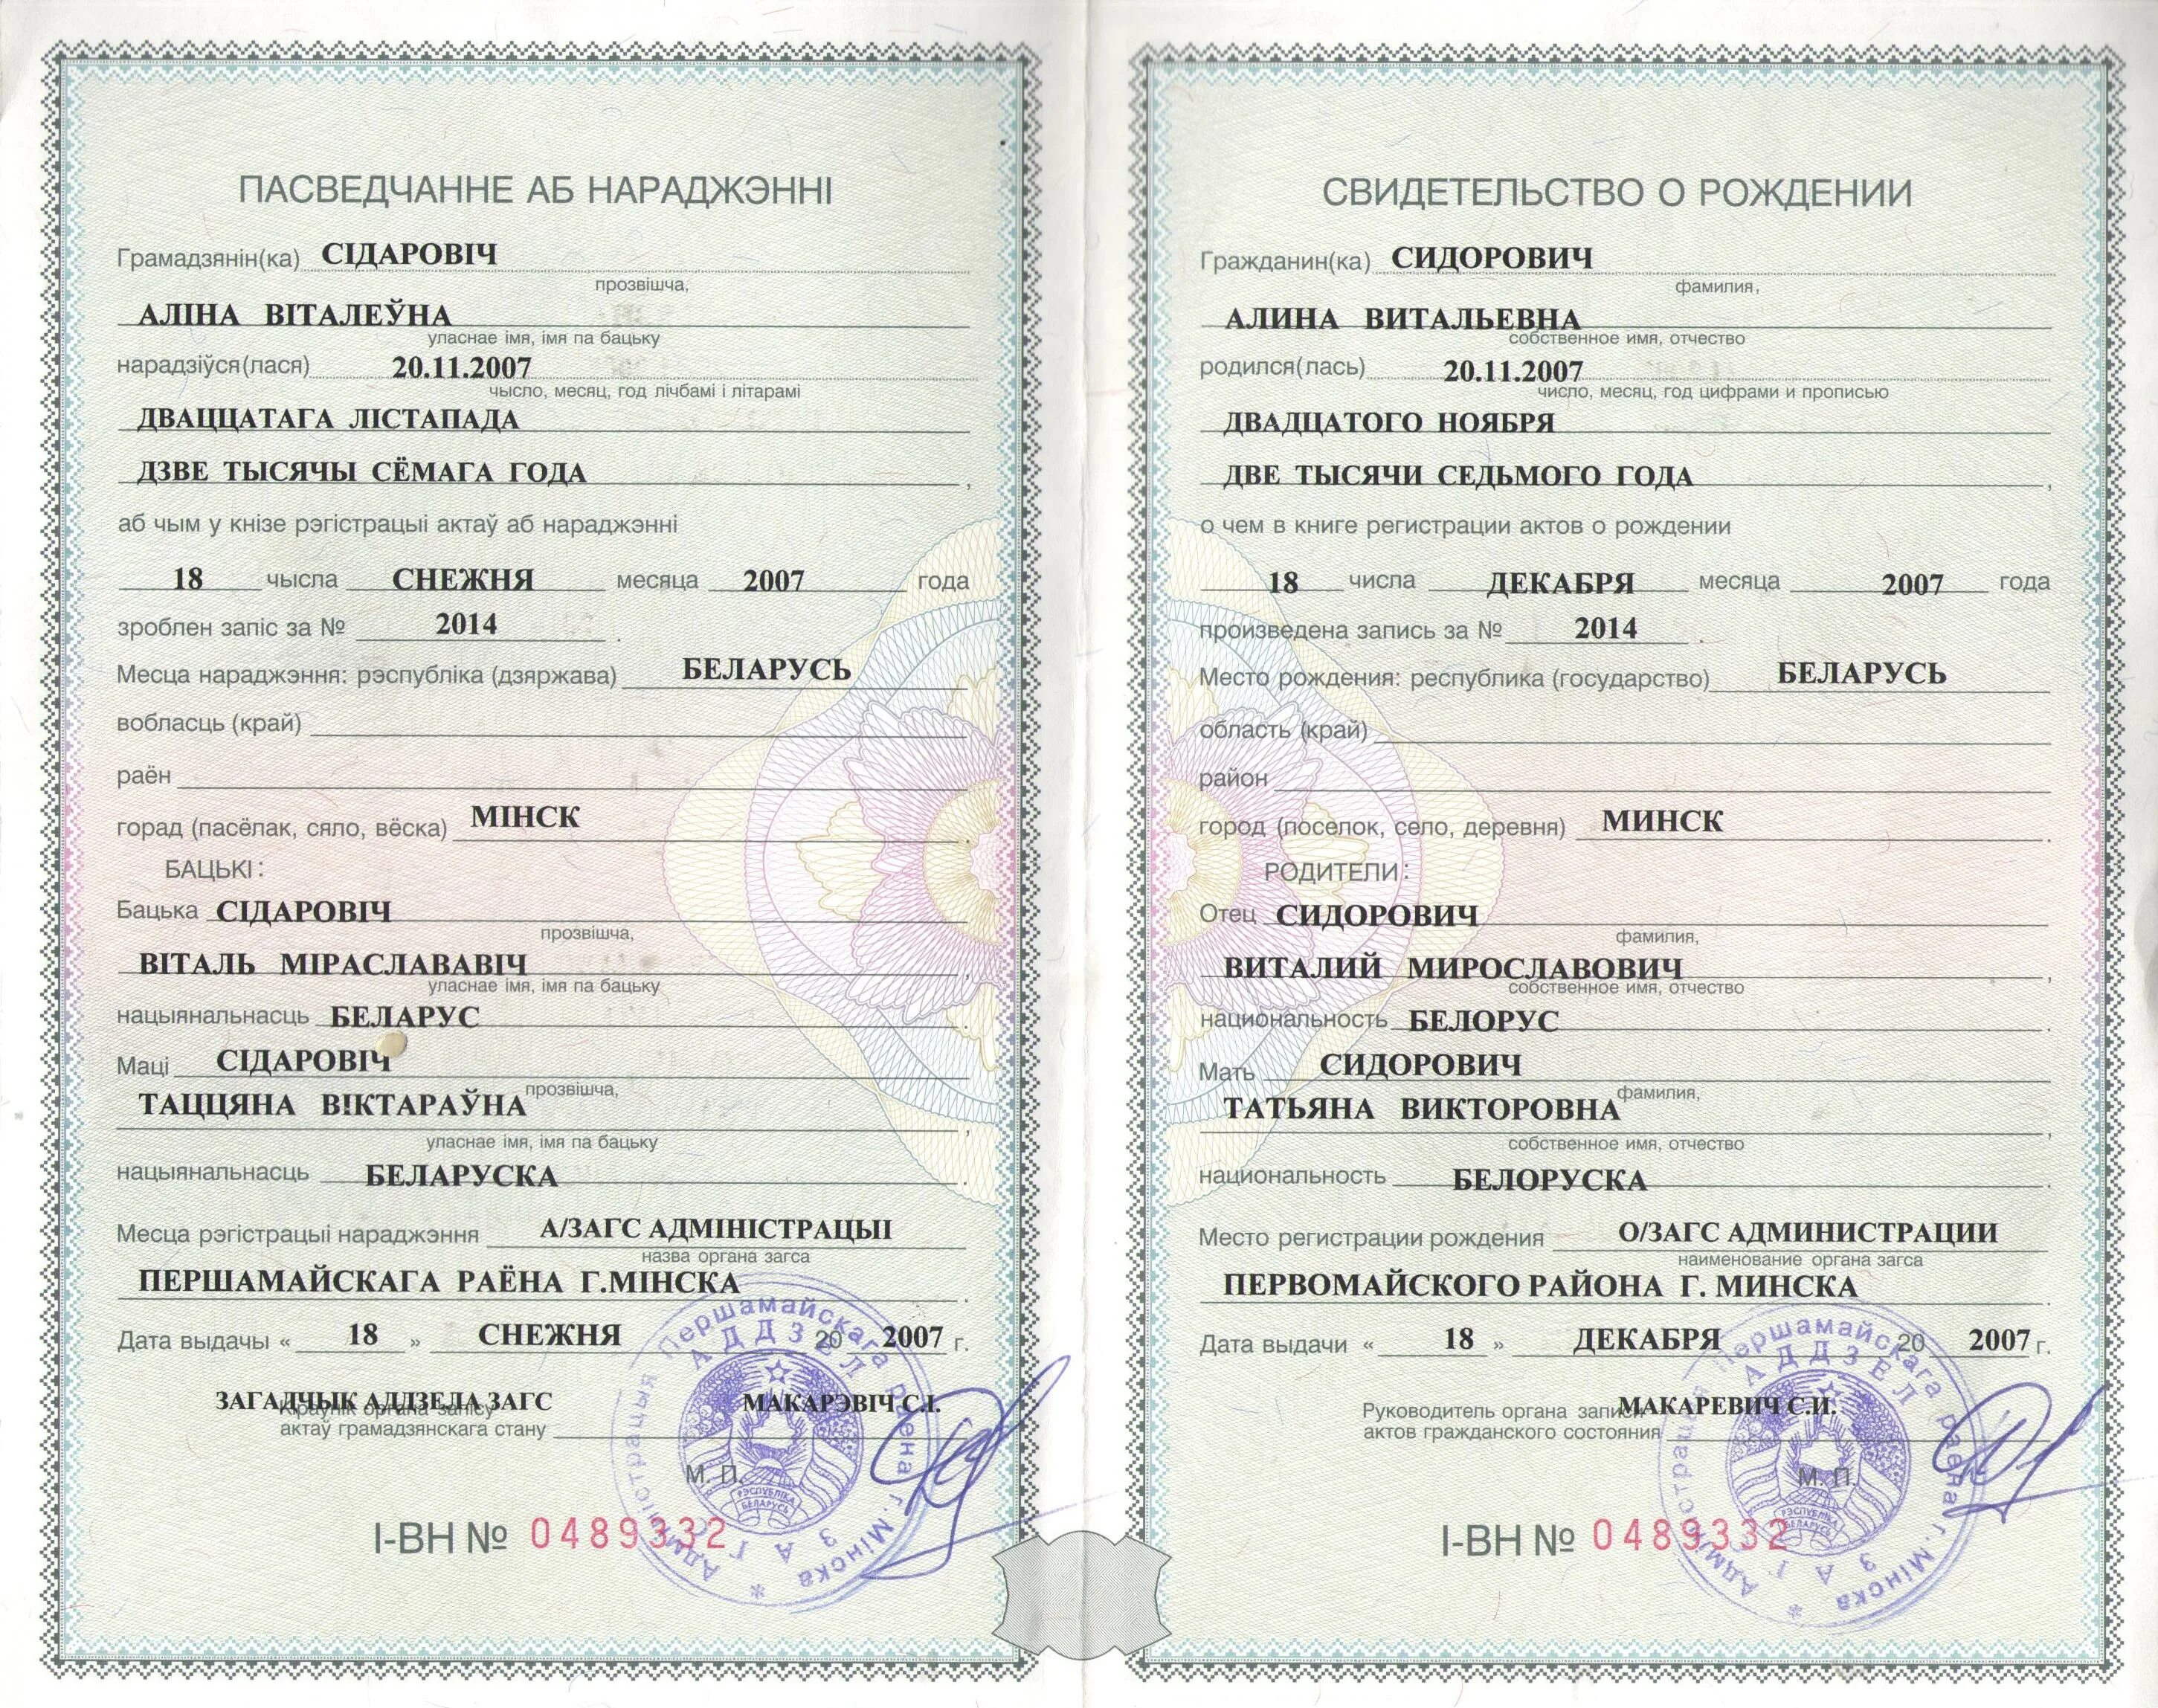 ПАСВЕДЧАННЕ АБ НАРАДЖЭННІ
Грамадзянін(ка) СІДАРОВІЧ
прозвішча,
АЛІНА ВІТАЛЕЎНА
уласнае імя, імя па бацьку
нарадзіўся(лася) 20.11.2007
чысло, месяц, год лічбамі і літарамі
ДВАЦЦАТАГА ЛІСТАПАДА
ДЗВЕ ТЫСЯЧЫ СЁМАГА ГОДА ,
аб чым у кнізе рэгістрацыі актаў аб нараджэнні
18 чысла СНЕЖНЯ месяца 2007 года
зроблен запіс за № 2014 .
Месца нараджэння: рэспубліка (дзяржава) БЕЛАРУСЬ
вобласць (край)
раён
горад (пасёлак, сяло, вёска) МІНСК .
БАЦЬКІ:
Бацька СІДАРОВІЧ
прозвішча,
ВІТАЛЬ МІРАСЛАВАВІЧ ,
уласнае імя, імя па бацьку
нацыянальнасць БЕЛАРУС .
Маці СІДАРОВІЧ
прозвішча,
ТАЦЦЯНА ВІКТАРАЎНА ,
уласнае імя, імя па бацьку
нацыянальнасць БЕЛАРУСКА .
Месца рэгістрацыі нараджэння А/ЗАГС АДМІНІСТРАЦЫІ
назва органа загса
ПЕРШАМАЙСКАГА РАЁНА Г.МІНСКА .
Дата выдачы « 18 » СНЕЖНЯ 20 2007 г.
ЗАГАДЧЫК АДДЗЕЛА ЗАГС МАКАРЭВІЧ С.І.
Кіраўнік органа запісу
актаў грамадзянскага стану
М. П.
І-ВН № 0489332
Адміністрацыя Першамайскага раёна г. Мінска *
АДДЗЕЛ ЗАГС
РЭСПУБЛІКА
БЕЛАРУСЬ
СВИДЕТЕЛЬСТВО О РОЖДЕНИИ
Гражданин(ка) СИДОРОВИЧ
фамилия,
АЛИНА ВИТАЛЬЕВНА
собственное имя, отчество
родился(лась) 20.11.2007
число, месяц, год цифрами и прописью
ДВАДЦАТОГО НОЯБРЯ
ДВЕ ТЫСЯЧИ СЕДЬМОГО ГОДА ,
о чем в книге регистрации актов о рождении
18 числа ДЕКАБРЯ месяца 2007 года
произведена запись за № 2014 .
Место рождения: республика (государство) БЕЛАРУСЬ
область (край)
район
город (поселок, село, деревня) МИНСК .
РОДИТЕЛИ:
Отец СИДОРОВИЧ
фамилия,
ВИТАЛИЙ МИРОСЛАВОВИЧ ,
собственное имя, отчество
национальность БЕЛОРУС .
Мать СИДОРОВИЧ
фамилия,
ТАТЬЯНА ВИКТОРОВНА ,
собственное имя, отчество
национальность БЕЛОРУСКА .
Место регистрации рождения О/ЗАГС АДМИНИСТРАЦИИ
наименование органа загса
ПЕРВОМАЙСКОГО РАЙОНА Г. МИНСКА .
Дата выдачи « 18 » ДЕКАБРЯ 20 2007 г.
Руководитель органа записи МАКАРЕВИЧ С.И.
актов гражданского состояния
М. П.
І-ВН № 0489332
Адміністрацыя Першамайскага раёна г. Мінска *
АДДЗЕЛ ЗАГС
РЭСПУБЛІКА
БЕЛАРУСЬ